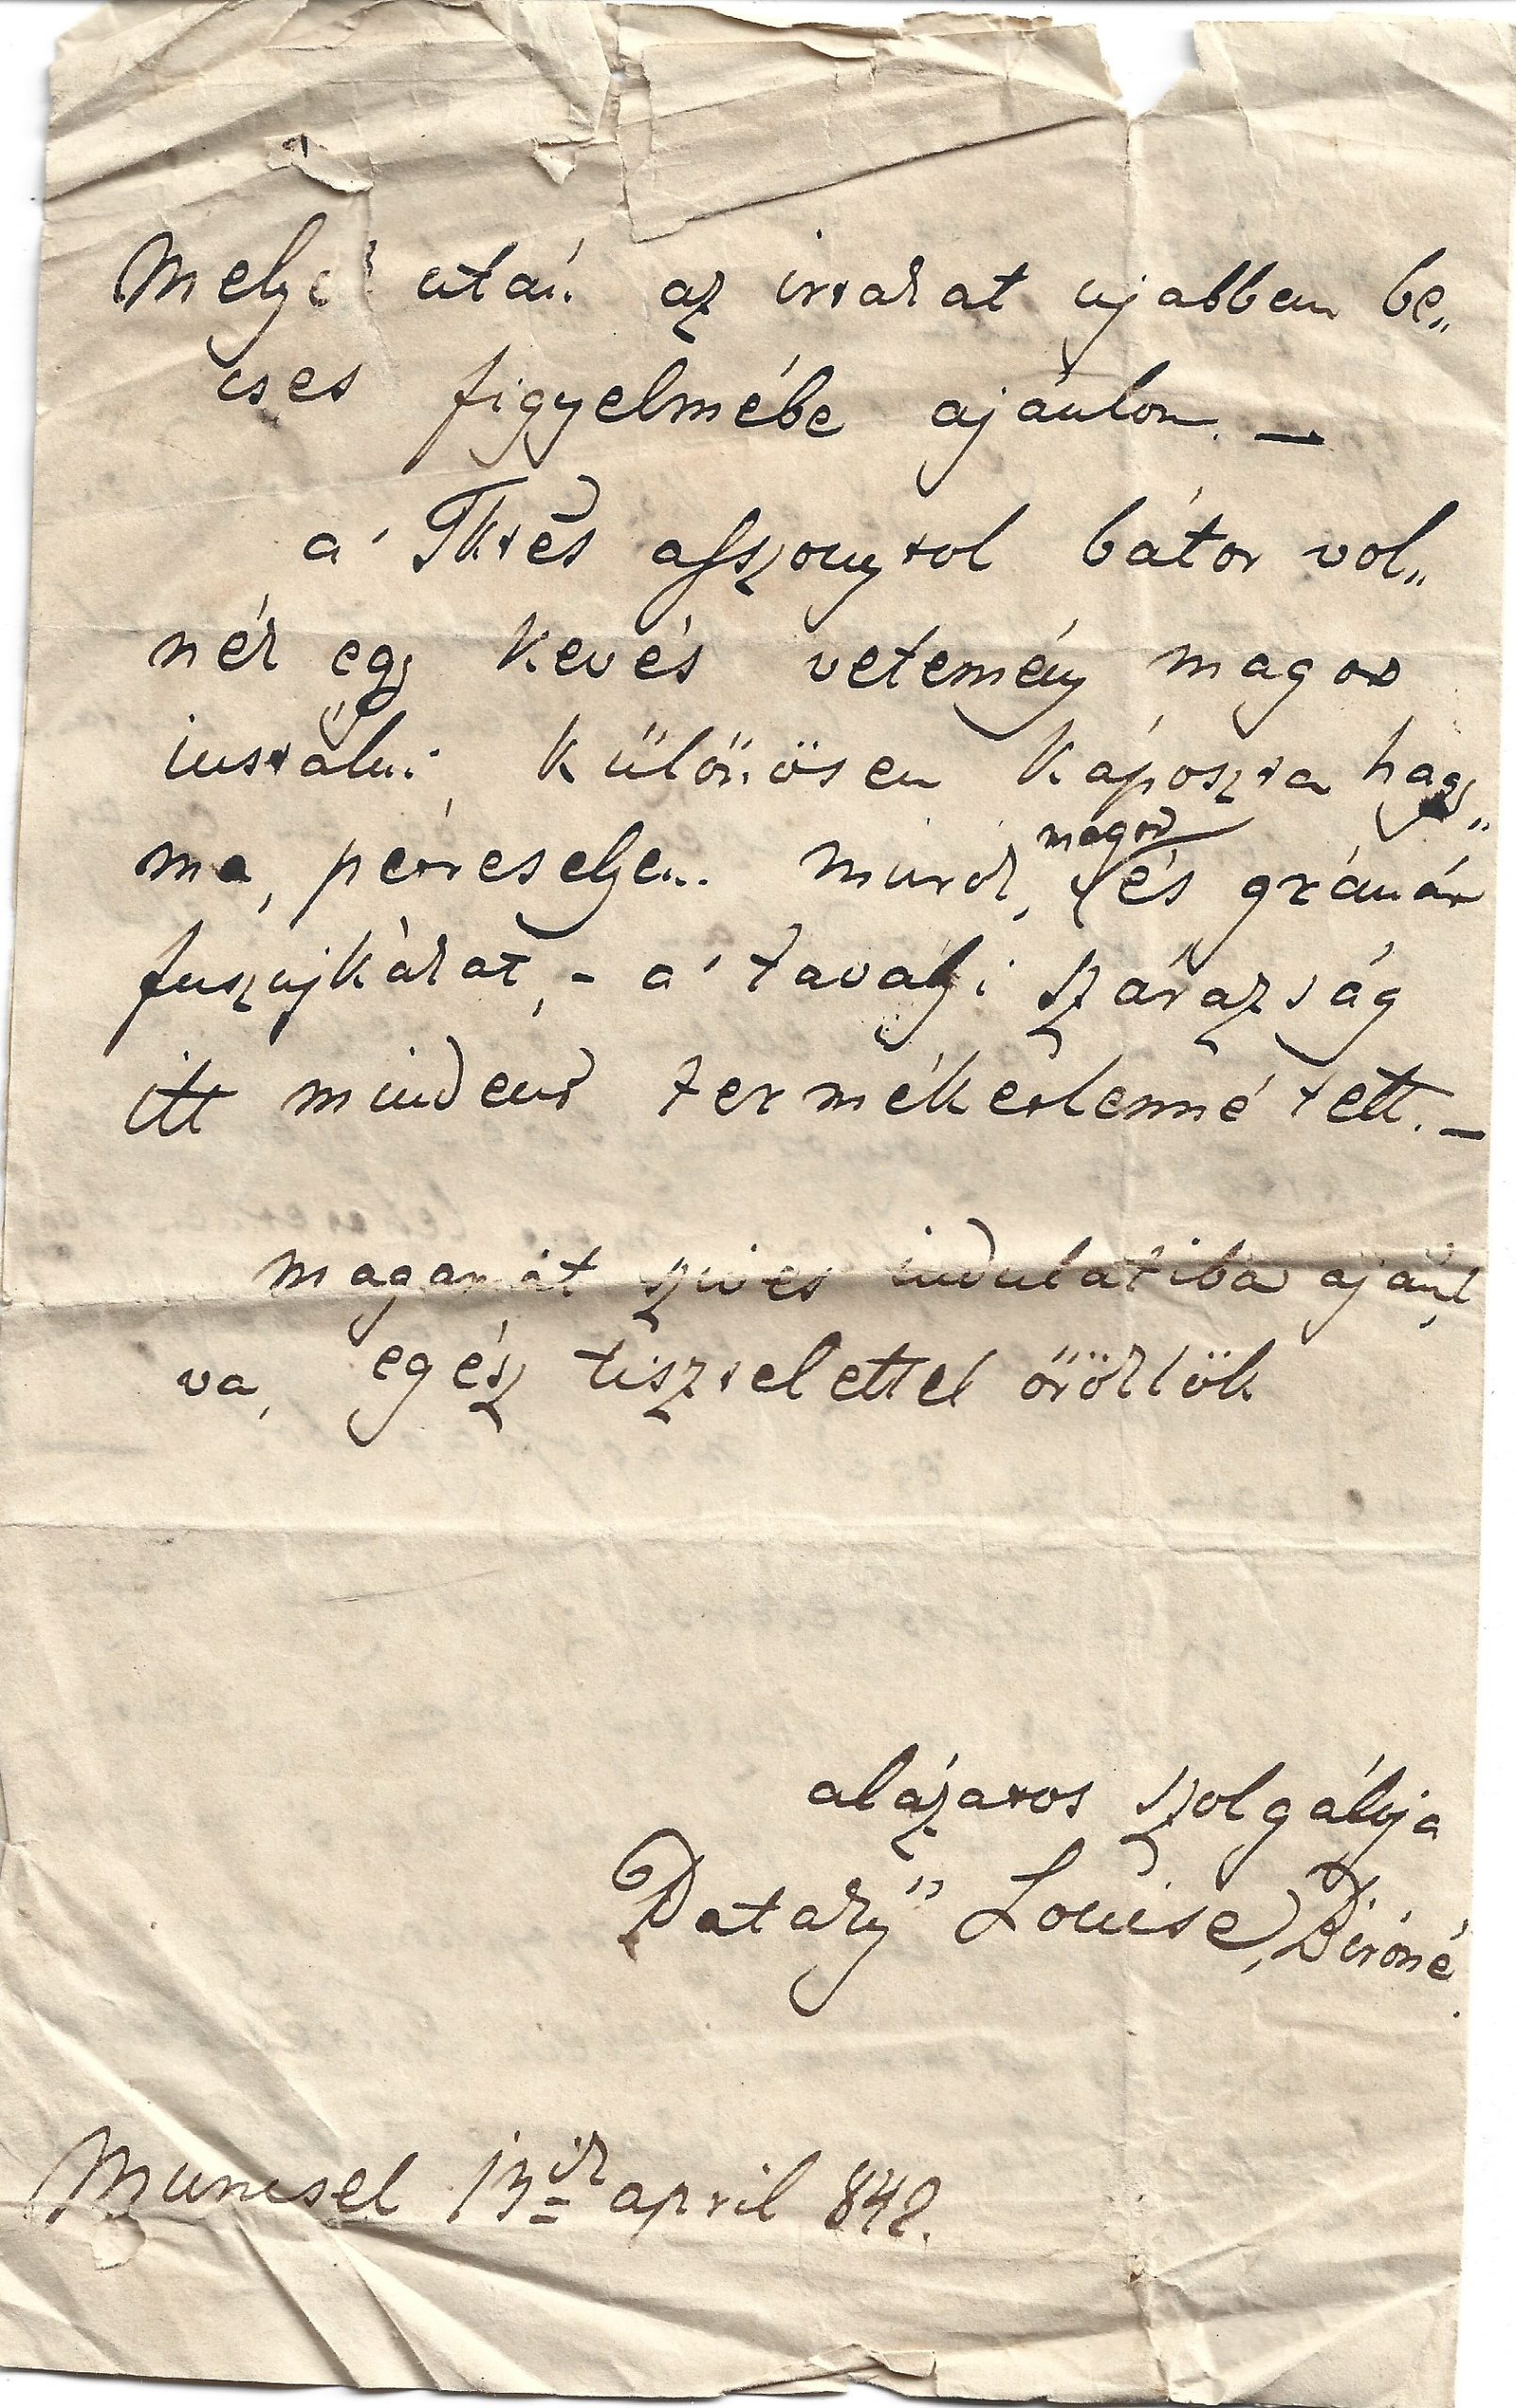 Melyek után az irtakat ujabban be„
cses figyelmébe ajánlom. —
a' Tktes aſszonytol bátor vol„
nék egy kevés vetemény magot
instálni különösen káposzta hagy„
ma, petreselyem murok, magot és gránát
fuszujkákat, - a' tavalyi szárazság
itt mindent termékétlenné tett. —
magamat szives indulatiba ajánl
va, egész tisztelettel örökkön
alázatos szolgálója
Pataky Louise, Biróné.
Muncsel 13ik april 842.